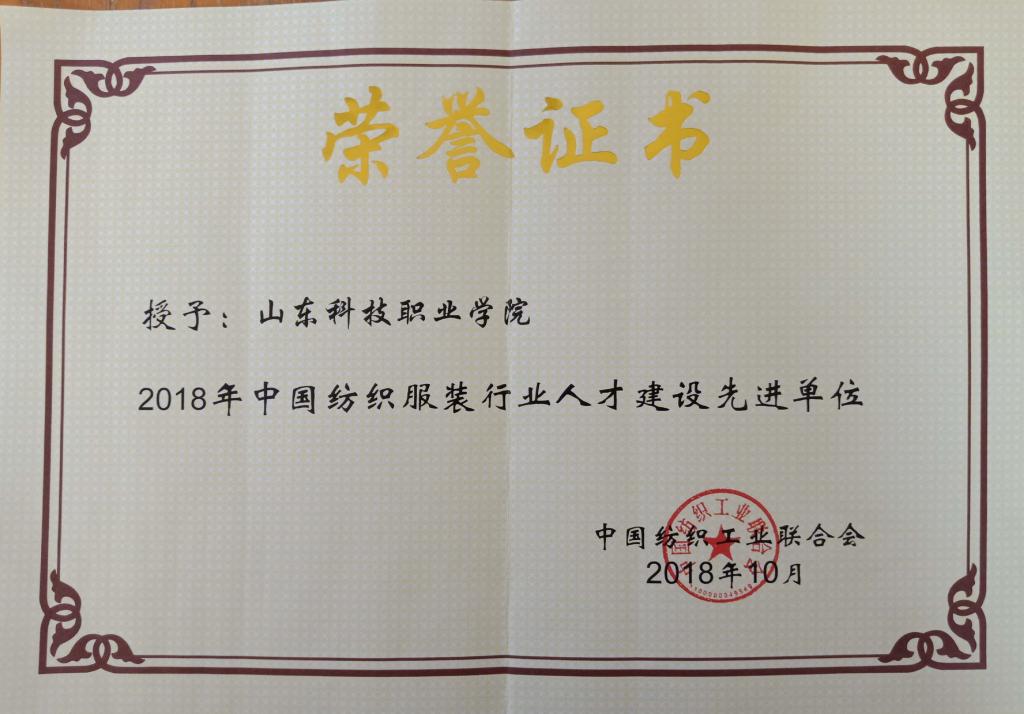 荣誉证书
授予：山东科技职业学院
2018年中国纺织服装行业人才建设先进单位
中国纺织工业联合会
2018年10月
中国纺织工业联合会